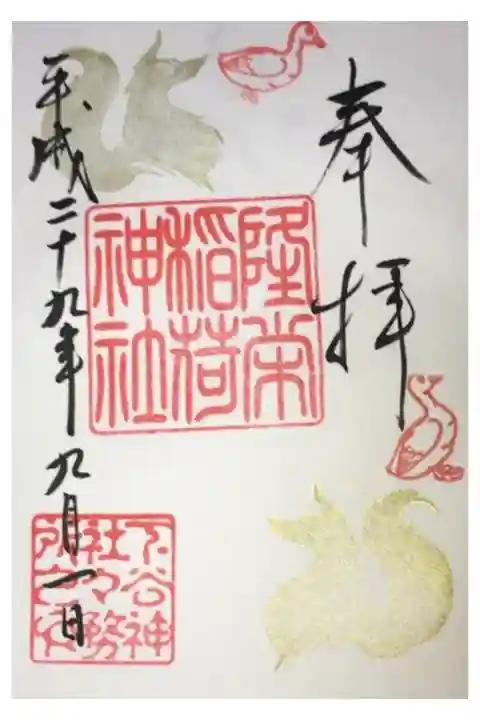 奉拝
隆栄
稲荷
神社
平成二十九年九月一日
下谷神
社々務
所之印